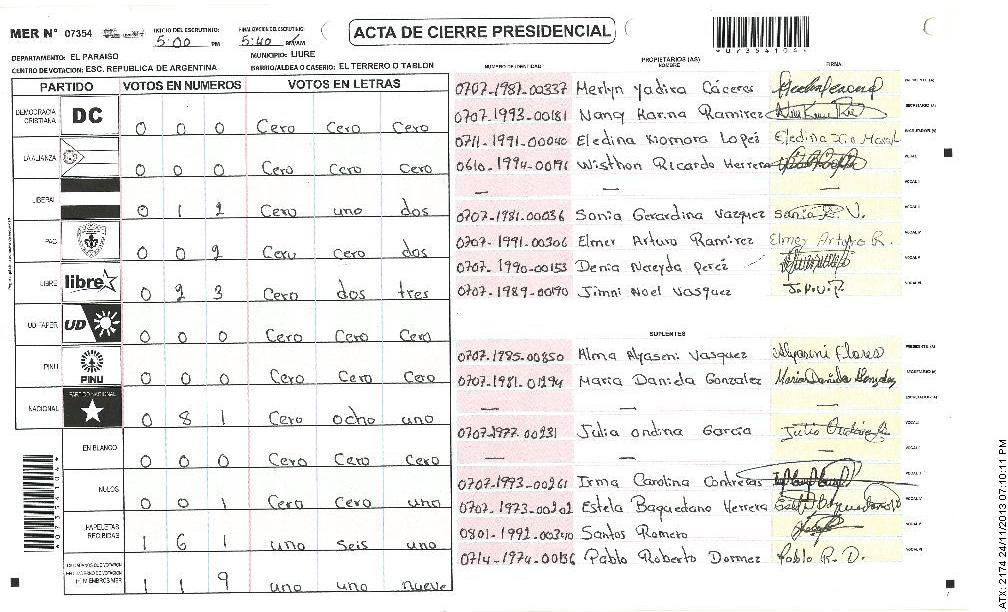 MER N° 07354
INICIO DEL ESCRUTINIO:
5:00 PM
FINALIZACION DE ESCRUTINIO:
5:40 PM
ACTA DE CIERRE PRESIDENCIAL
*07354104*
DEPARTAMENTO: EL PARAISO
MUNICIPIO: LIURE
CENTRO DE VOTACION: ESC. REPUBLICA DE ARGENTINA
BARRIO/ALDEA O CASERIO: EL TERRERO O TABLON
PARTIDO VOTOS EN NUMEROS VOTOS EN LETRAS
DEMOCRACIA CRISTIANA DC 0 0 0 Cero Cero Cero
LA ALIANZA 0 0 0 Cero Cero Cero
LIBERAL 0 1 2 Cero uno dos
PAC 0 0 2 Cero cero dos
LIBRE libre 0 2 3 Cero dos tres
UD-FAPER UD 0 0 0 Cero Cero Cero
PINU PINU 0 0 0 Cero Cero Cero
NACIONAL PARTIDO NACIONAL 0 8 1 Cero ocho uno
EN BLANCO 0 0 0 Cero Cero Cero
NULOS 0 0 1 Cero Cero uno
PAPELETAS RECIBIDAS 1 6 1 uno seis uno
1 1 9 uno uno nueve
*07354104*
PROPIETARIOS (AS)
NUMERO DE IDENTIDAD NOMBRE FIRMA
0707-1987-00337 Merlyn Yadira Cáceres
0707-1993-00181 Nancy Karina Ramirez
0711-1991-00040 Eledina Xiomara Lopez
0610-1994-00196 Wisthon Ricardo Herrera
— — —
0707-1981-00036 Sonia Gerardina Vazquez Sonia G. V.
0707-1991-00306 Elmer Arturo Ramirez Elmer Arturo R.
0707-1990-00153 Denia Nereyda Perez
0707-1989-00190 Jimni Noel Vasquez
SUPLENTES
0707-1995-00850 Alma Alyaseni Vasquez Alyaseni Flores
0707-1981-01294 Maria Daniela Gonzalez Maria Daniela Gonzalez
— — —
0707-1977-00231 Julia Ondina Garcia
— — —
0707-1993-00261 Irma Carolina Contreras
0707-1973-00202 Estela Baquedano Herrera
0801-1992-00340 Santos Romero
0714-1974-00136 Pablo Roberto Dormez Pablo R. D.
ATX: 2174 24/11/2013 07:10:11 PM